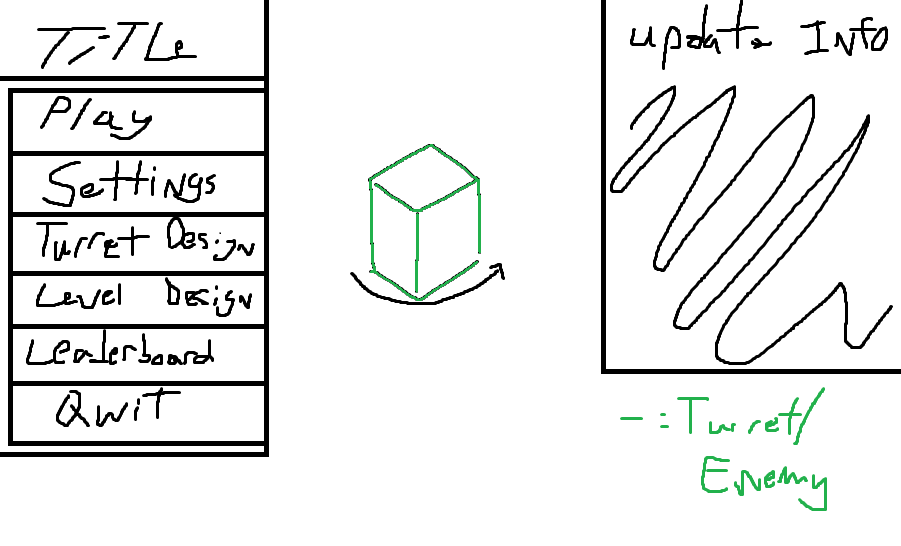 TiTLe
Play
Settings
Turret Design
Level Design
Leaderboard
Qwit
update Info
- : Turret/
Enemy